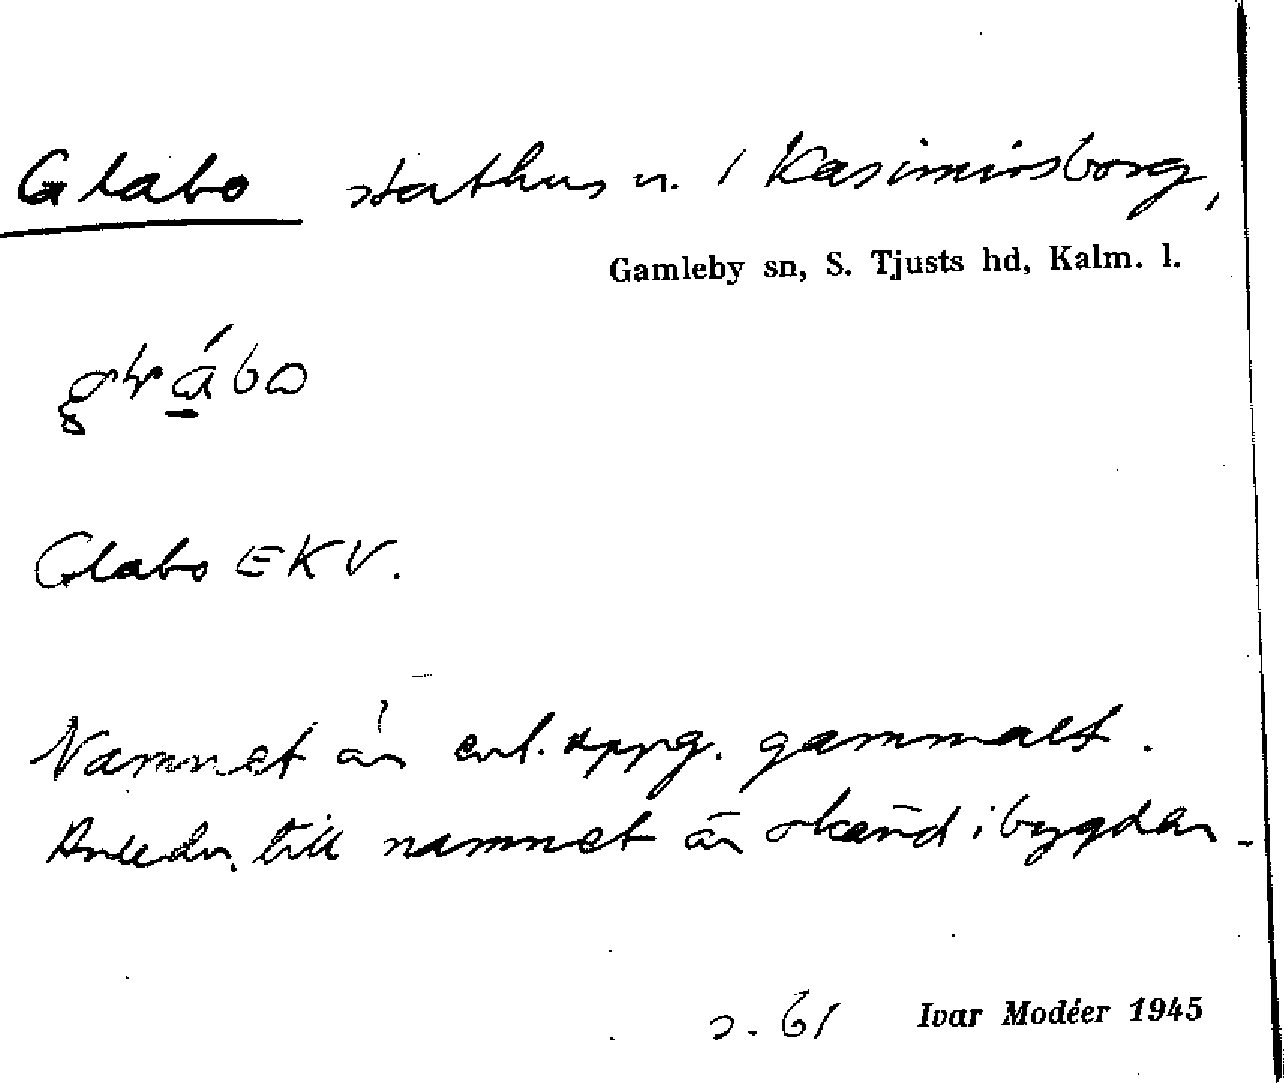 Glabo stathus u. / Kasimirsborg,
Gamleby sn, S. Tjusts hd, Kalm. l.
Glabo EKV.
Namnet är enl. uppg. gammalt.
Anledn. till namnet är okänd i bygden.
s. 61 Ivar Modéer 1945